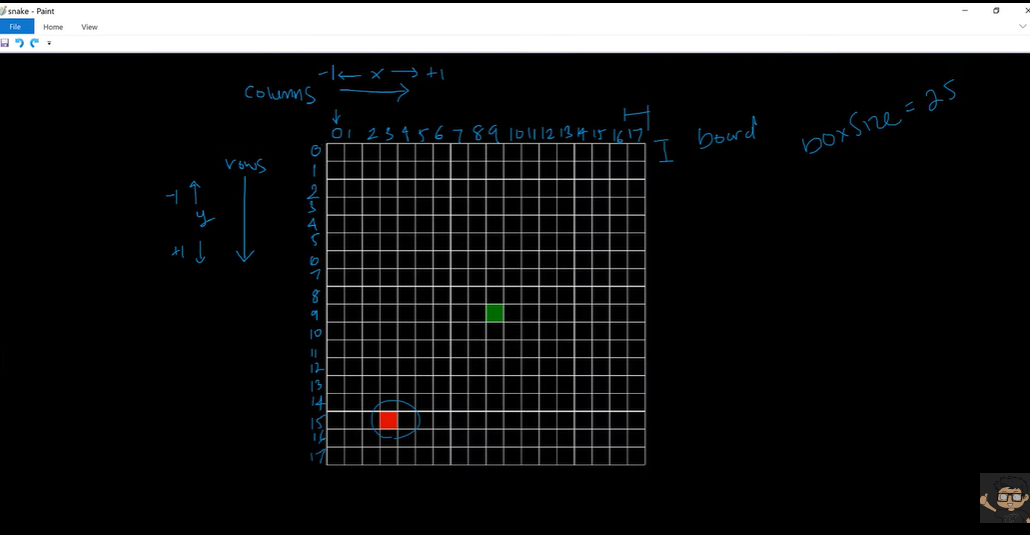 snake - Paint
File Home View
-1 ← x → +1
columns
boxSize = 25
0 1 2 3 4 5 6 7 8 9 10 11 12 13 14 15 16 17
board
rows
-1
y
+1
0
1
2
3
4
5
6
7
8
9
10
11
12
13
14
15
16
17